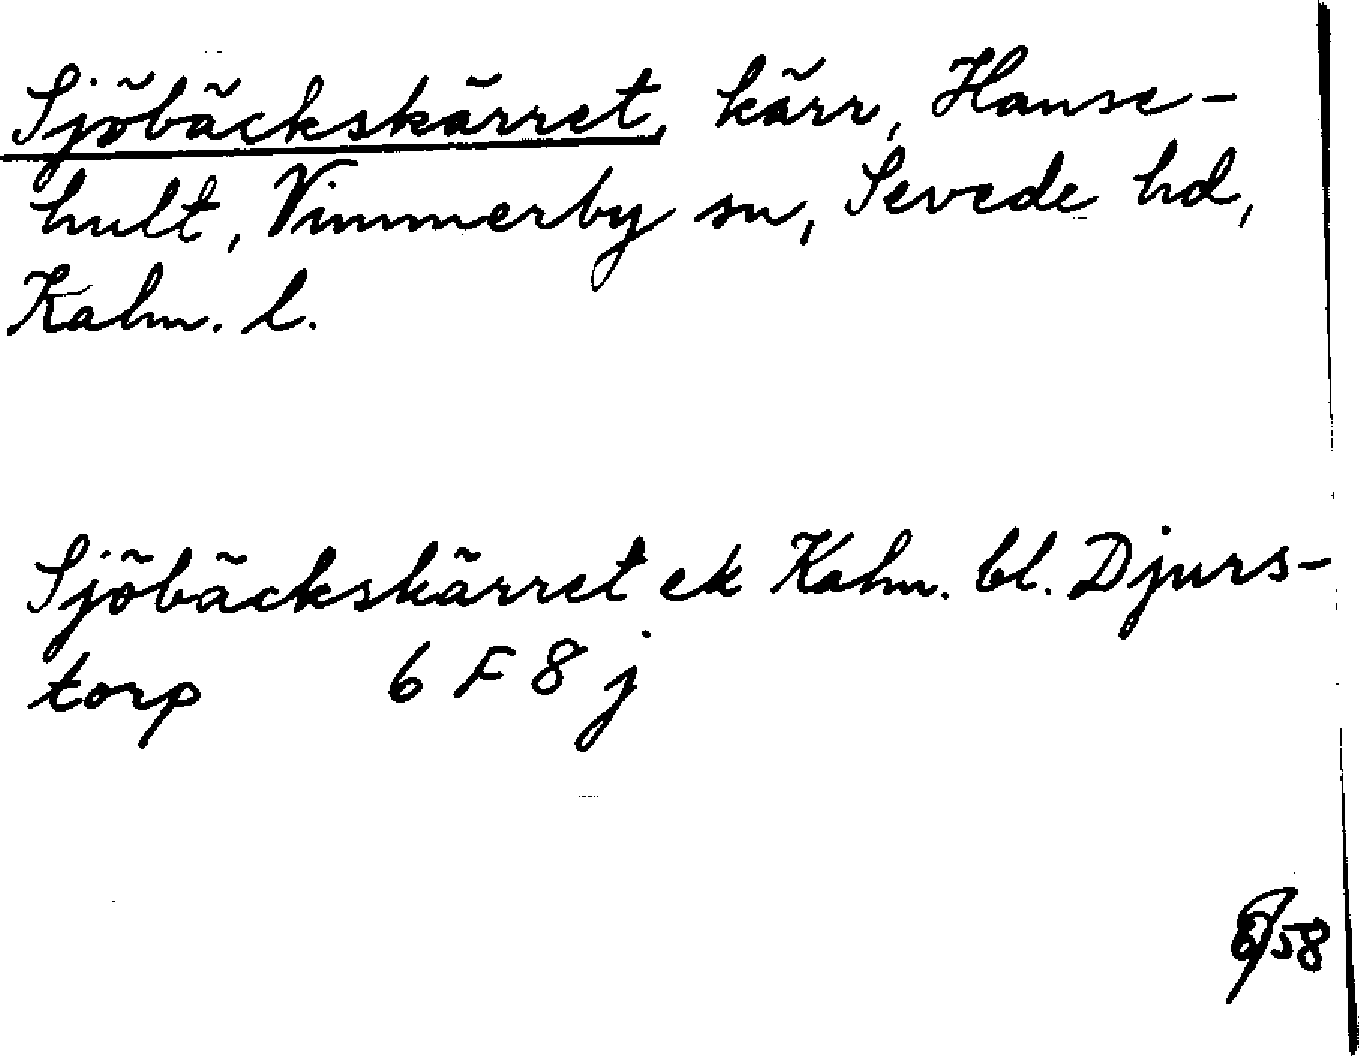 Sjöbäckskärret, kärr, Hanse-
hult, Vimmerby sn, Sevede hd,
Kalm. l.
Sjöbäckskärret ek Kalm. bl. Djurs-
torp 6 F 8 j
/58